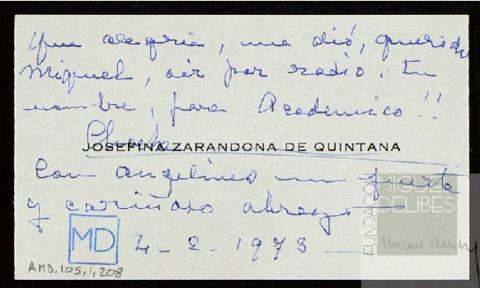 Que alegria, me dió, querido
Miguel, oir por radio, tu
nombre, para Academico!!
JOSEFINA ZARANDONA DE QUINTANA
Con Angelines un fuerte
y cariñoso abrazo
4-2-1973
MD
AMD,105,1,208
FUNDACIÓN
MIGUEL
DELIBES